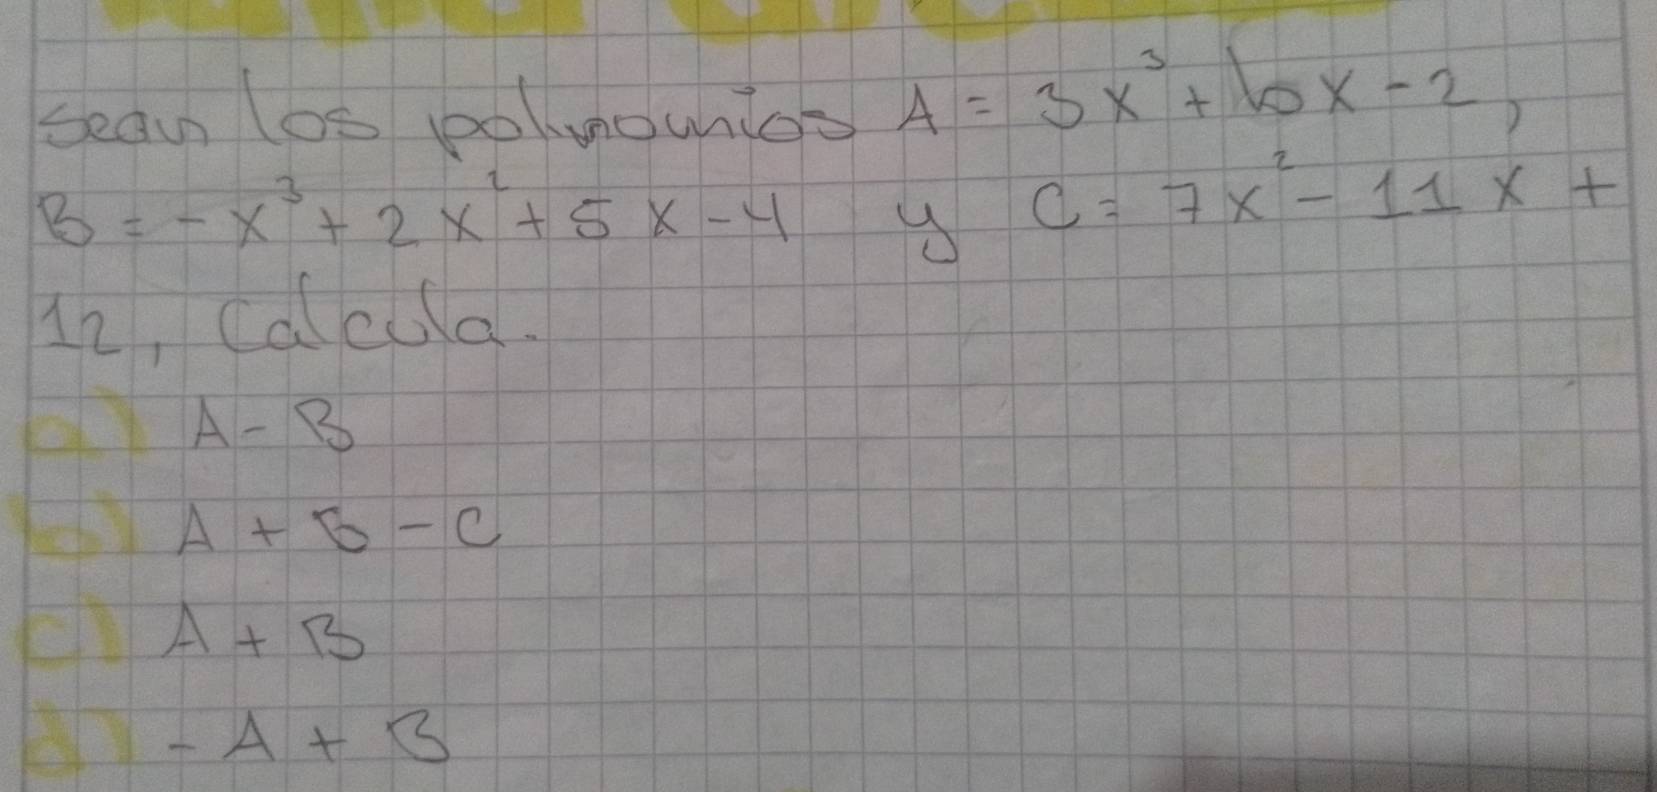 Sean los polinomios A = 3x³ + 10x - 2,
B = -x³ + 2x² + 5x - 4 y C = 7x² - 11x +
12, Calcula.
a) A - B
b) A + B - C
c) A + B
d) - A + B